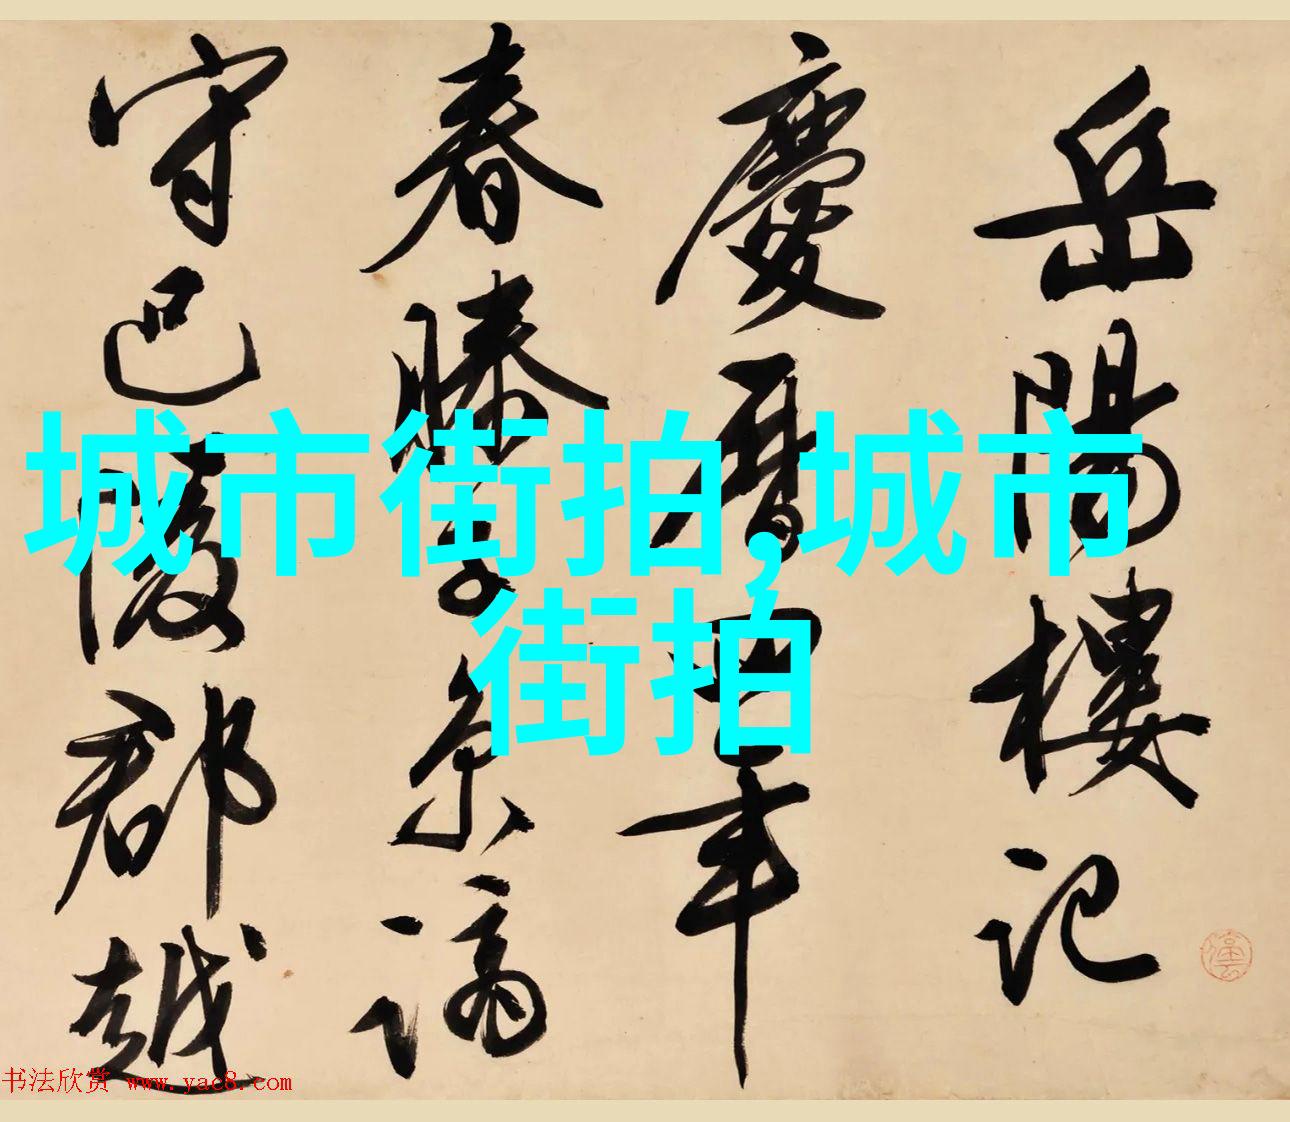 岳陽樓記
慶曆四年
春滕子京謫
守巴陵郡越
城市街拍,城市
街拍
书法欣赏 www.yac8.com